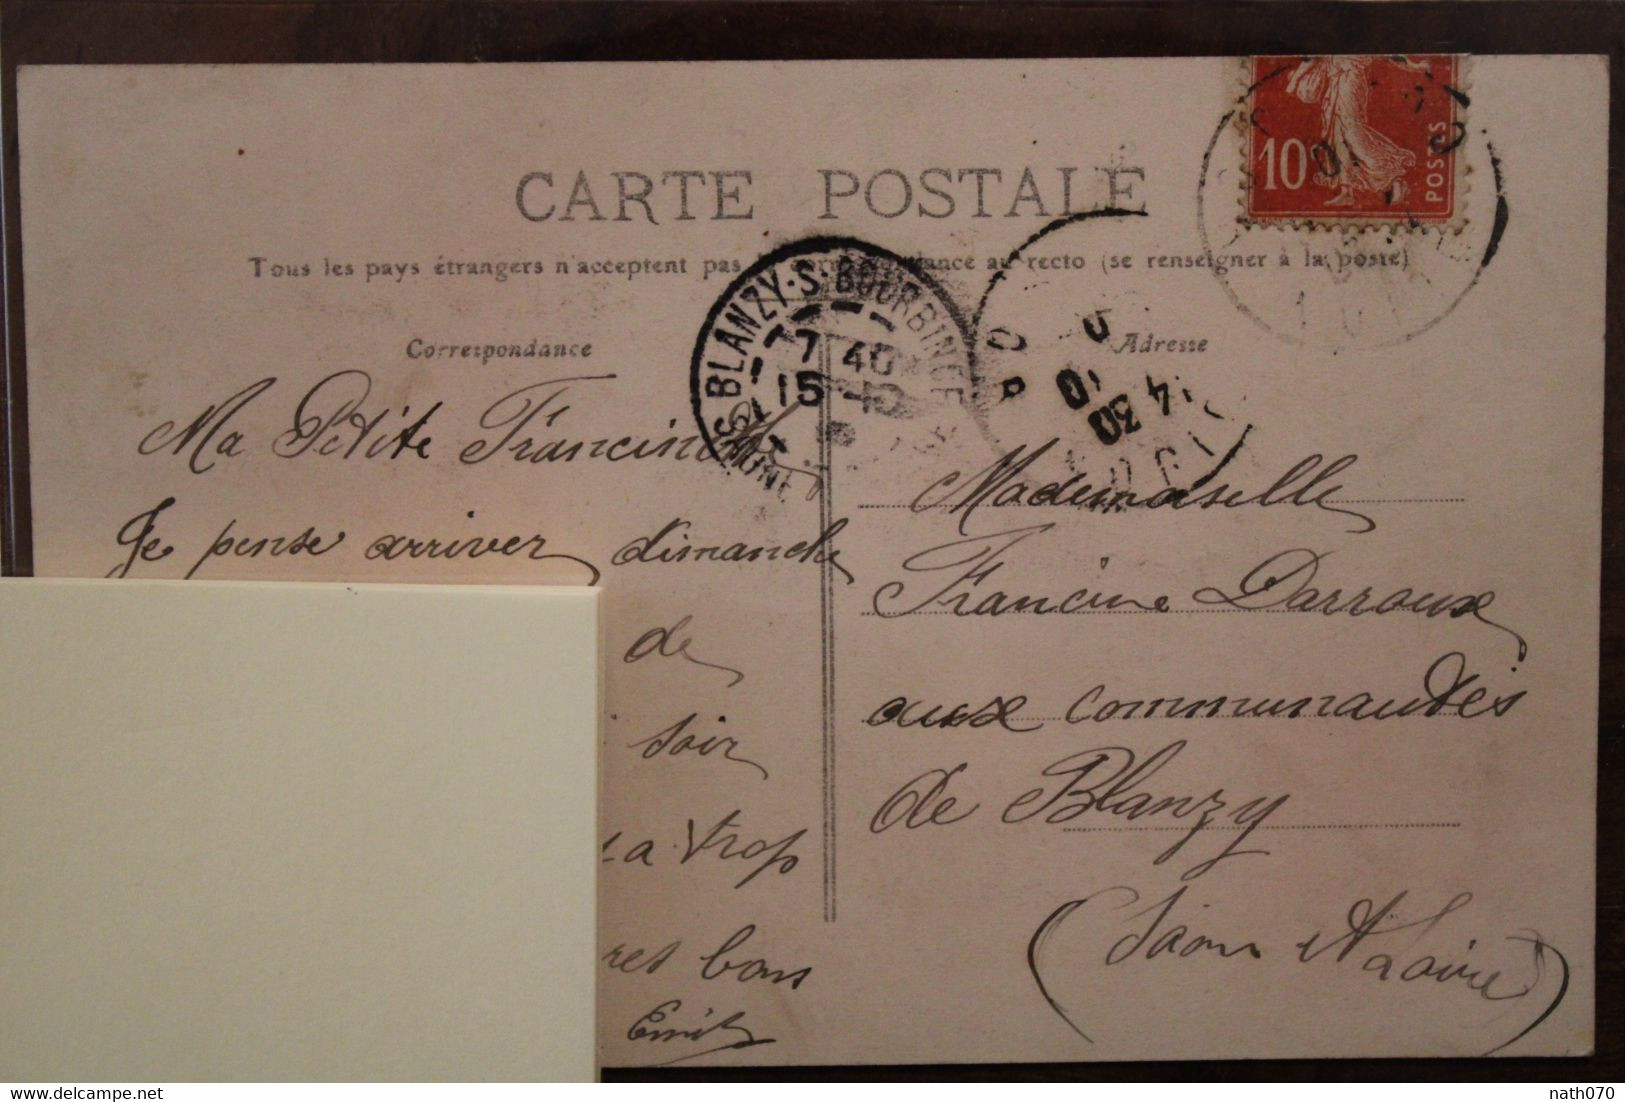 CARTE POSTALE
Tous les pays étrangers n'acceptent pas la correspondance au recto (se renseigner à la poste)
Correspondance
Adresse
10
POSTES
BLANZY·S·BOURBINCE
7 40
15 10
14 30
10
Ma Petite Francine
Je pense arriver dimanche
de
soir
trop
bons
Emile
Mademoiselle
Francine Darroux
aux communautés
de Blanzy
(Saone et Loire)
delcampe.net
nath070